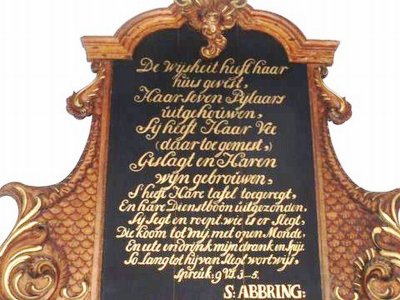 De Wijsheit heeft haar
huis gevest,
Haar seven Pylaars
uitgehouwen,
Sy heeft Haar Vee
(daar toe gemest)
Geslagt en Haren
wijn gebrouwen,
S heeft Hare tafel toegeregt,
En hare Dienstboôn uitgezonden.
Sy Segt en roept, wie is er Slegt,
Die koom tot My met open Monde,
En ete en drink mijn drank en Spijs
So Lang tot hy van Slegt wort wijs,
Spreuk: 9 Vs. 3-5.
S: ABBRING: